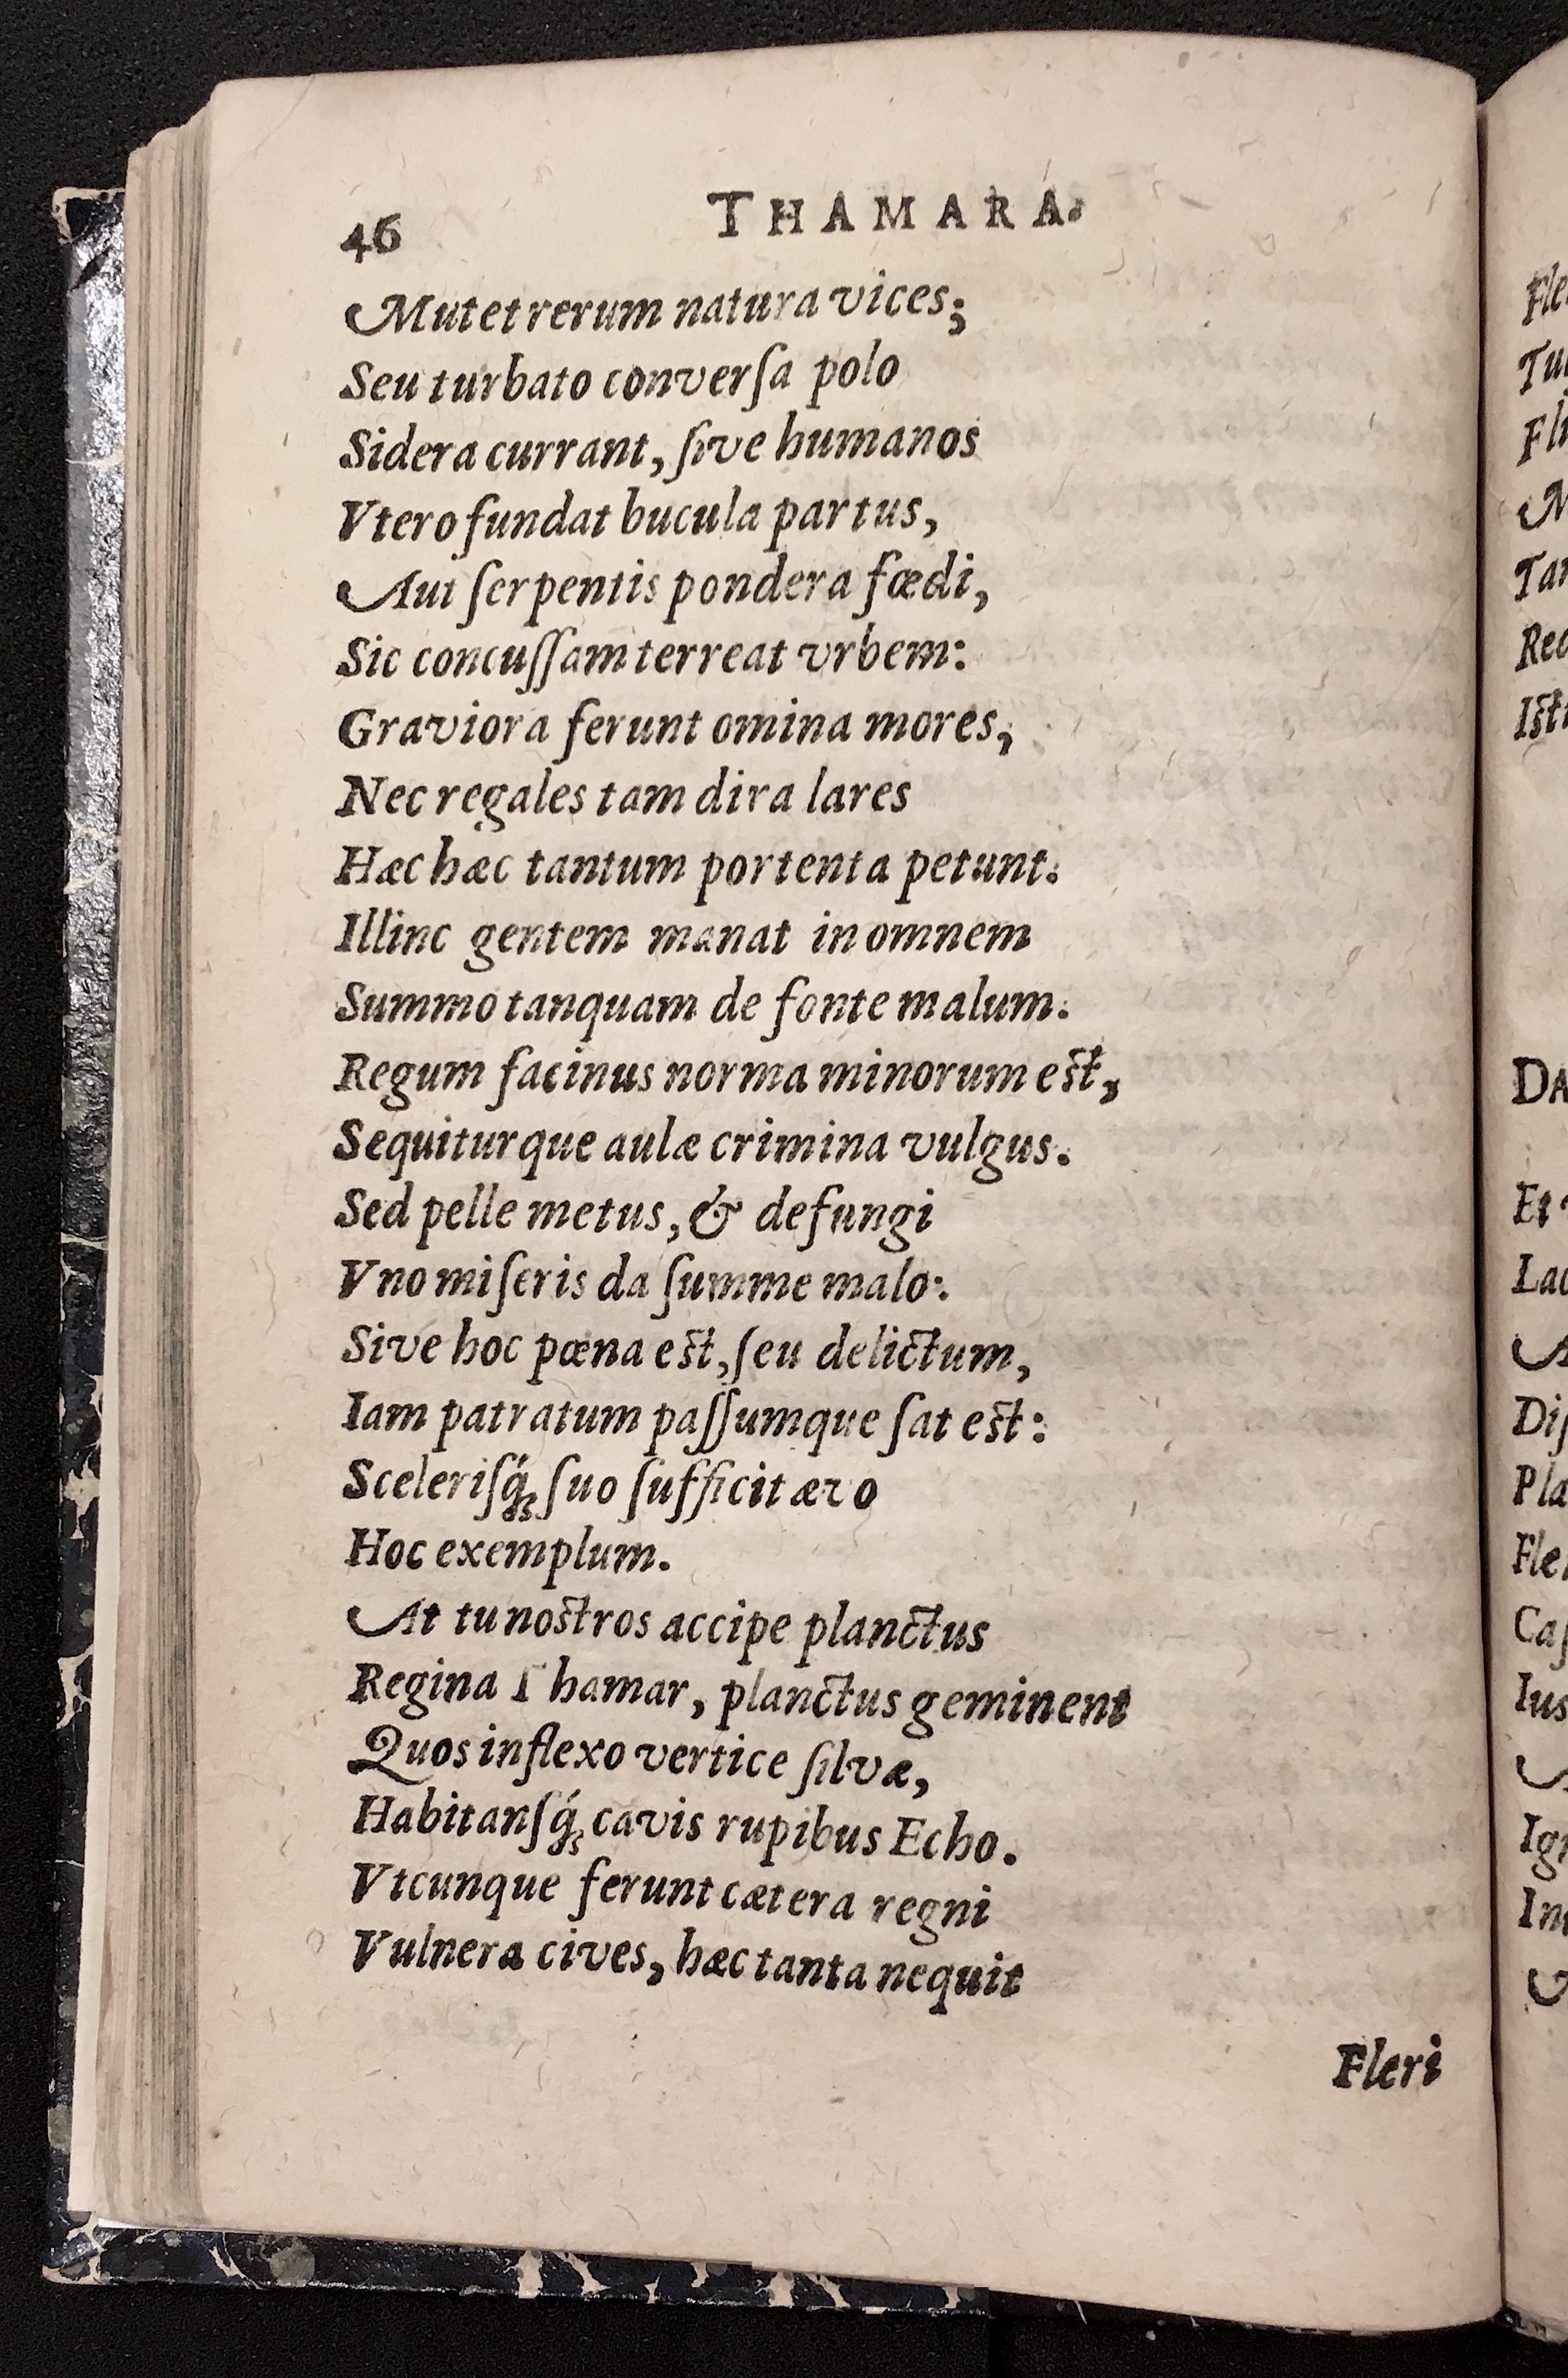 46 THAMARA.
Mutet rerum natura vices;
Seu turbato converſa polo
Sidera currant, ſive humanos
Vtero fundat bucula partus,
Aut ſerpentis pondera fœdi,
Sic concuſſam terreat vrbem:
Graviora ferunt omina mores,
Nec regales tam dira lares
Hæc hæc tantum portenta petunt.
Illinc gentem manat in omnem
Summo tanquam de fonte malum.
Regum facinus norma minorum est,
Sequiturque aulæ crimina vulgus.
Sed pelle metus, & defungi
Vno miſeris da ſumme malo:
Sive hoc pœna est, ſeu delictum,
Iam patratum paſſumque ſat est:
Sceleriſq́; ſuo ſufficit ævo
Hoc exemplum.
At tu nostros accipe planctus
Regina Thamar, planctus geminent
Quos inflexo vertice ſilvæ,
Habitanſq́; cavis rupibus Echo.
Vtcunque ferunt cætera regni
Vulnera cives, hæc tanta nequit
Fleri